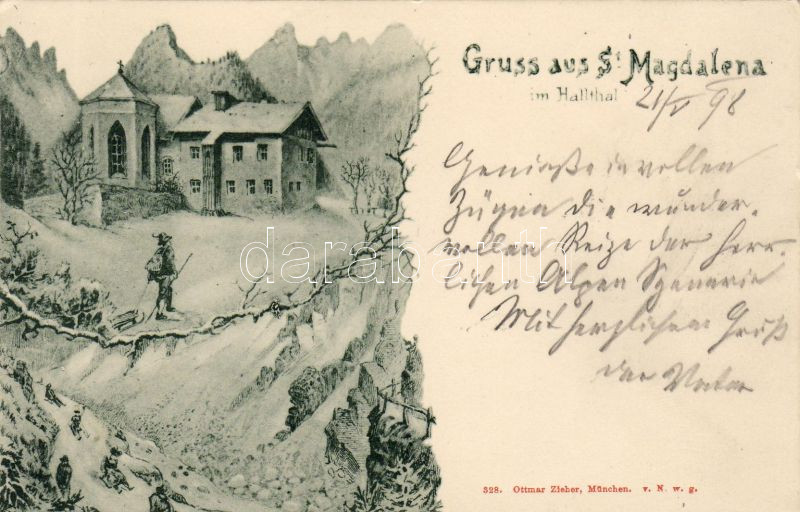 Gruss aus St. Magdalena
im Hallthal
21/V 98
Genieße in vollen
Zügen die wunder-
vollen Reize der herr-
lichen Alpen Szenerie
Mit herzlichem Gruß
der Vater
darabanth
328. Ottmar Zieher, München. v. N. w. g.